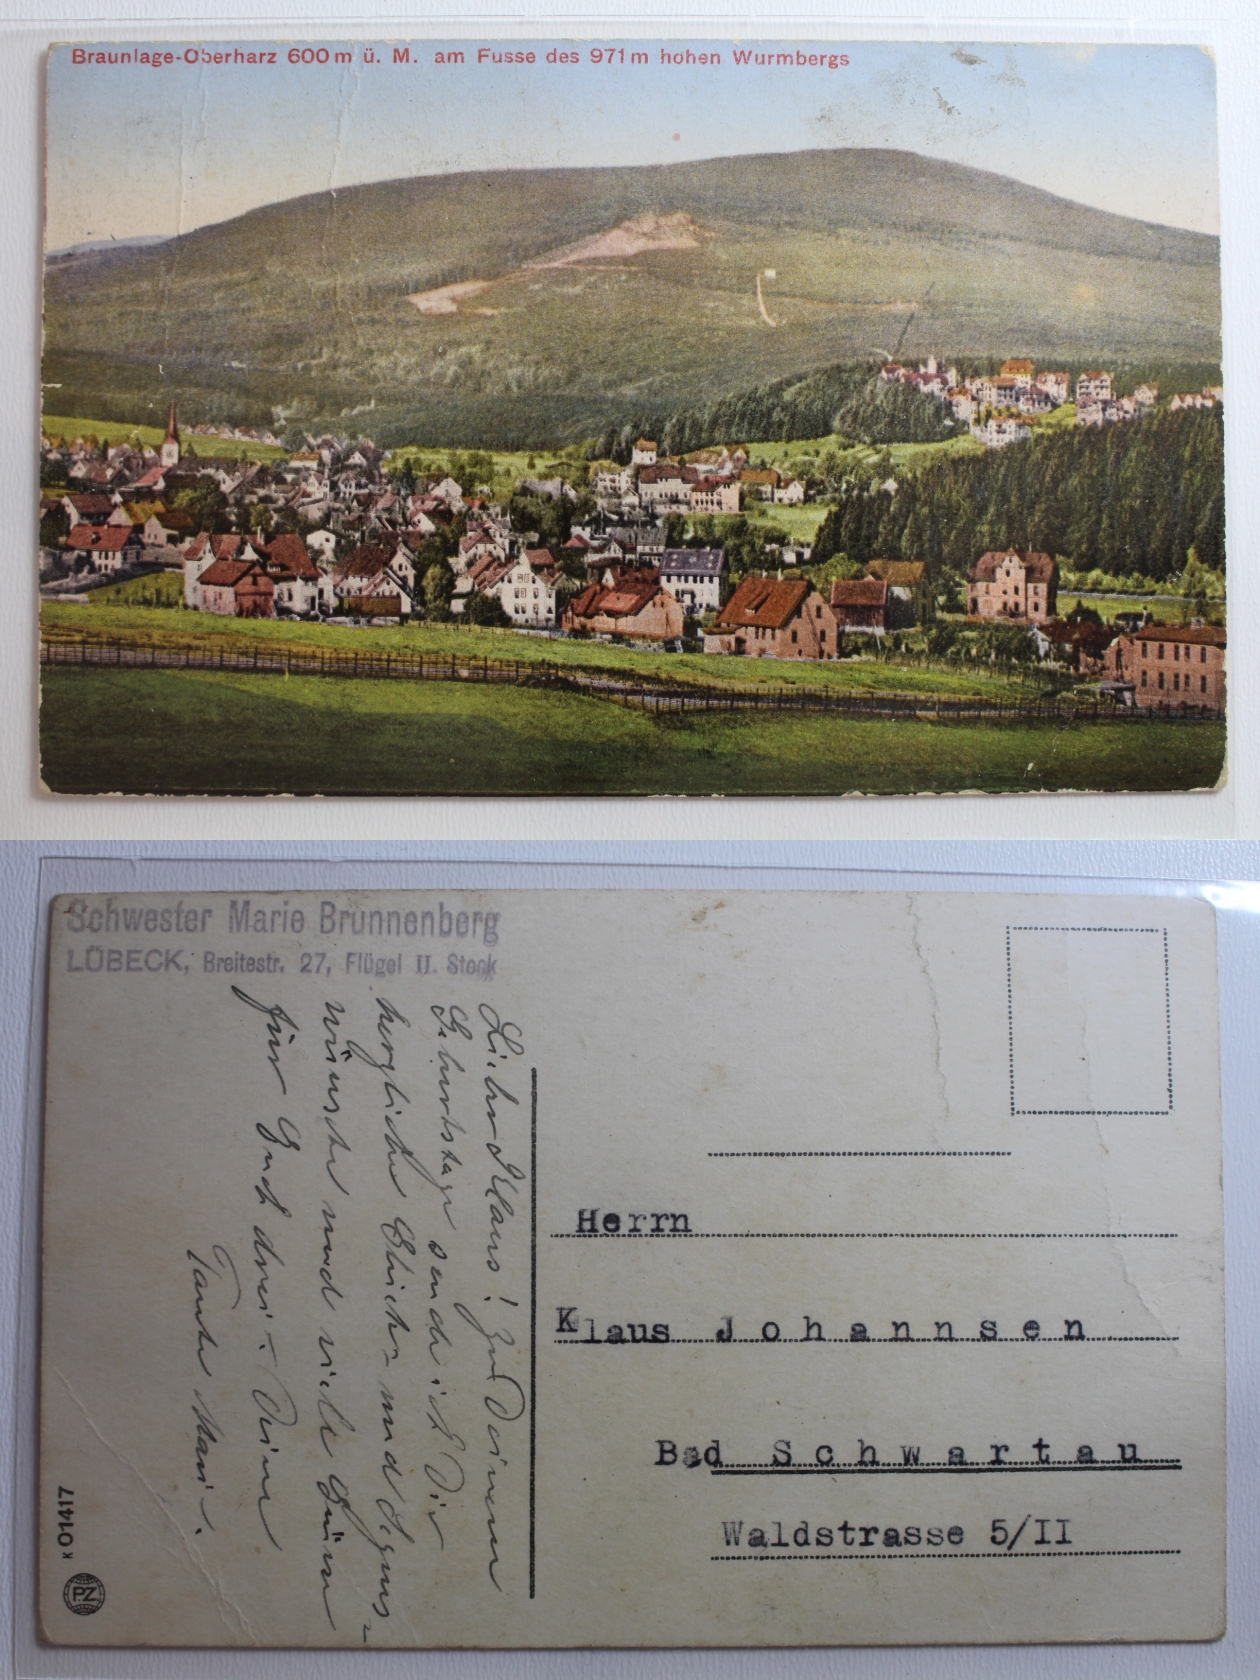 Braunlage-Oberharz 600 m ü. M. am Fusse des 971 m hohen Wurmbergs
Schwester Marie Brunnenberg
LÜBECK, Breitestr. 27, Flügel II. Stock
Lieber Klaus! Zu Deinem
Geburtstage sende ich Dir
herzliche Glück- und Segens-
wünsche und viele Grüsse
für Euch drei. Deine
Tante Mari.
Herrn
Klaus Johannsen
Bad Schwartau
Waldstrasse 5/II
K 01417
PZ